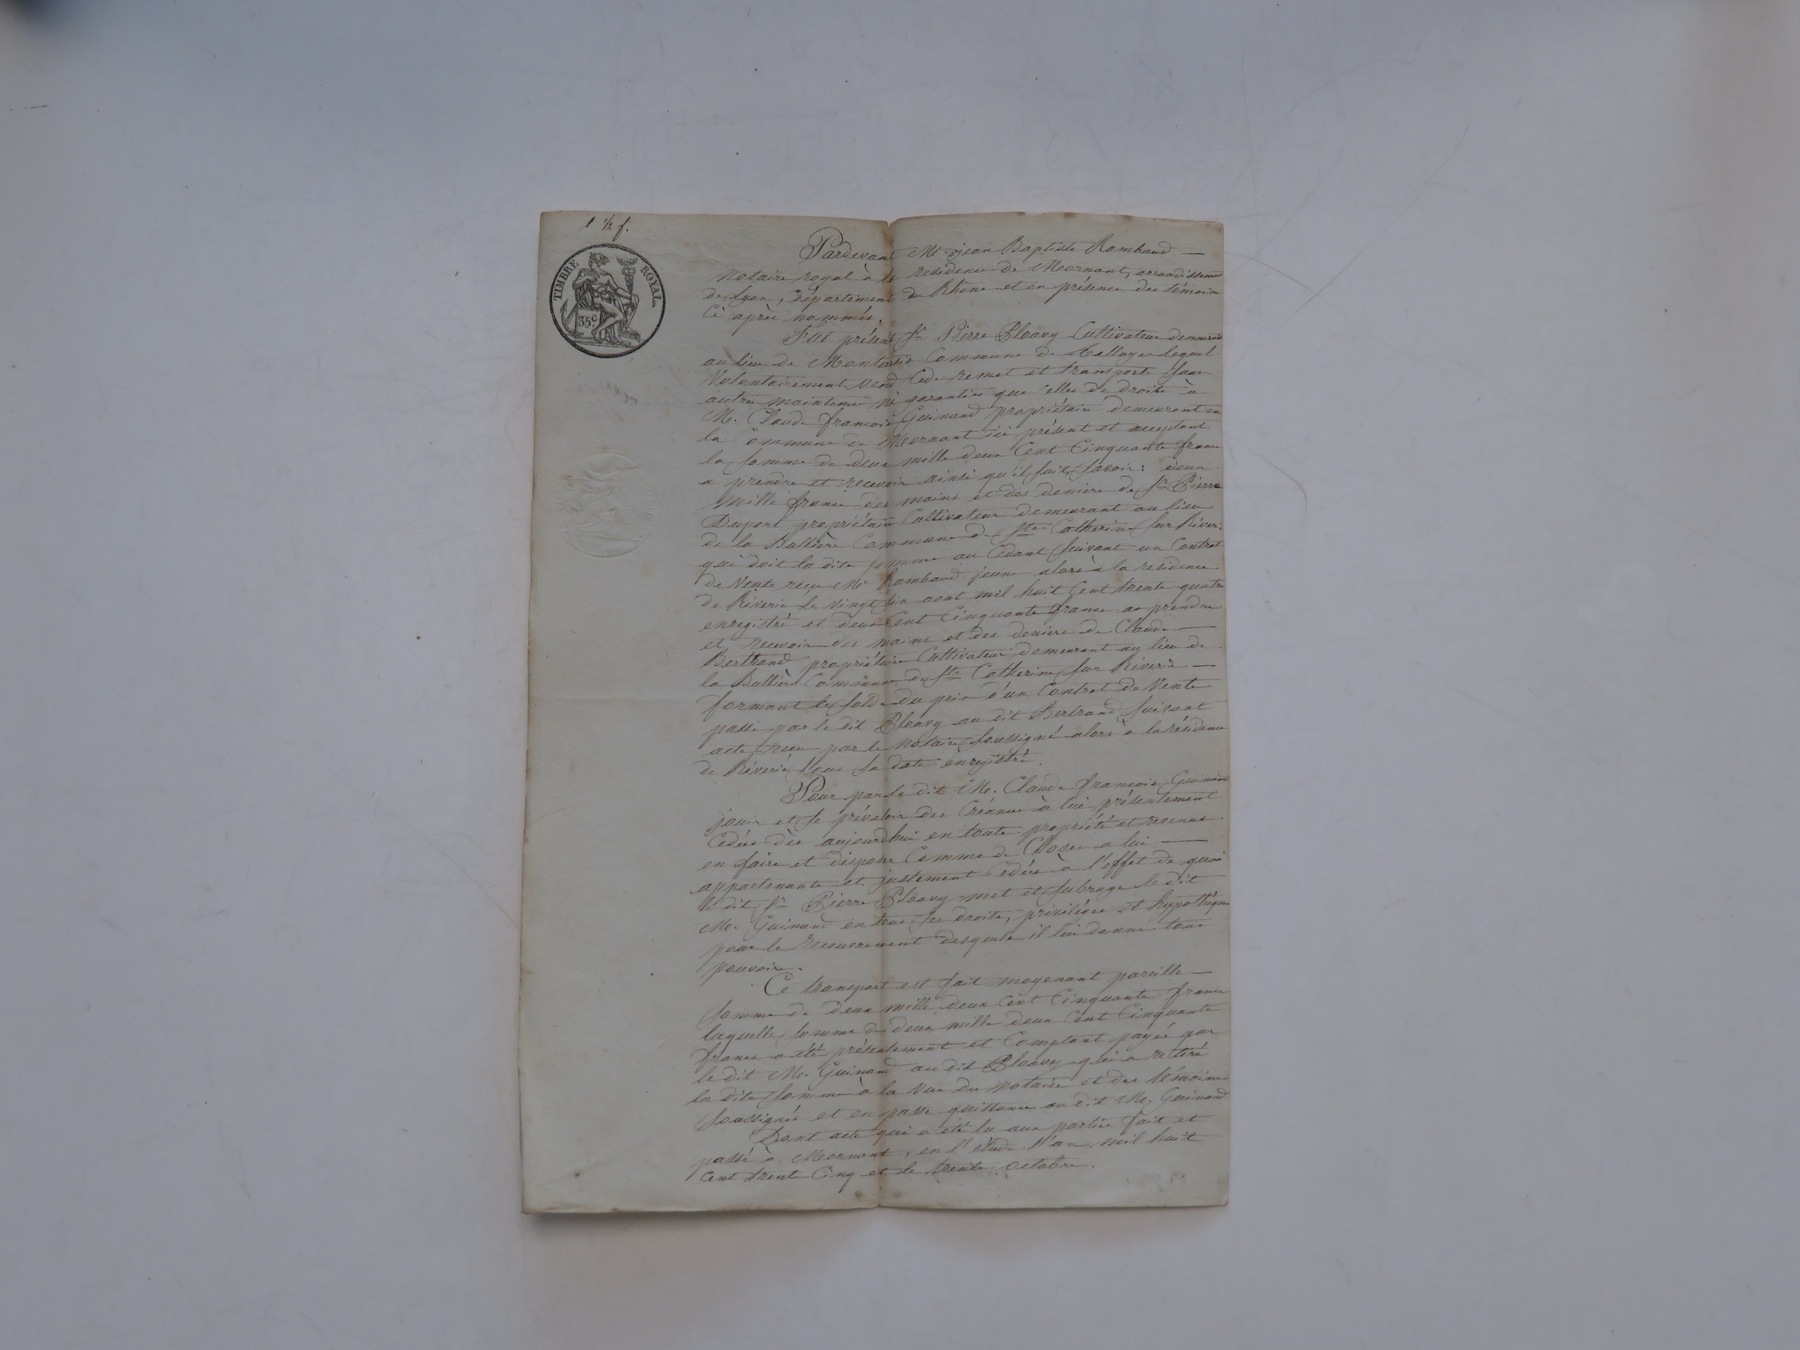 1 ½ f.
TIMBRE ROYAL
35c
Pardevant Me Jean Baptiste Rambaud
notaire royal à la résidence de Mornant, arrondissement
de Lyon, département du Rhône et en présence des témoins
Ci après nommés.
Fut présent Sr Pierre Cultivateur demeurant
au lieu de Commune de lequel
Volontairement vend Cede remet et transporte sans
autre maintenue ni garantie que celles de droits à
M. Claude françois Guinand propriétaire demeurant en
la Commune de Mornant ici présent et acceptant
la somme de deux mille deux Cent Cinquante francs
a prendre et recevoir ainsi qu'il suit, savoir: deux
mille francs des mains et des deniers de Sr Pierre
Dupont propriétaire Cultivateur demeurant au lieu
de la Commune de Ste Catherine sur Riverie
qui doit la dite somme au Cédant suivant un Contrat
de Vente reçu Me Rambaud jeune alors à la résidence
de Riverie le vingt six aout mil huit Cent trente quatre
enregistré et deux Cent Cinquante francs a prendre
et recevoir des mains et des deniers de Claude
Bertrand propriétaire Cultivateur demeurant au lieu de
la Commune de Ste Catherine sur Riverie
formant le solde du prix d'un Contrat de Vente
passé par le dit au dit Bertrand suivant
acte reçu par le notaire soussigné alors à la résidence
de Riverie sous sa date enregistré.
Pour par le dit M. Claude françois Guinand
jouir et se prévaloir des Créances à lui présentement
Cédées dès aujourd'hui en toute propriété et revenus
en faire et disposer Comme de Choses a lui
appartenante et justement Cédées à l'effet de quoi
le dit Sr Pierre met et subroge le dit
M. Guinand en tous ses droits, privilèges et hypothèques
pour le recouvrement desquels il lui donne tout
pouvoir.
Ce transport est fait moyenant pareille
somme de deux mille deux Cent Cinquante francs
laquelle somme de deux mille deux Cent Cinquante
francs a été présentement et Comptant payée par
le dit M. Guinand au dit qui a retiré
la dite somme à la vue du notaire et des témoins
soussignés et en passe quittance au dit M. Guinand
Dont acte qui a été lu aux parties fait et
passé à Mornant, en l'étude l'an mil huit
Cent trente Cinq et le trente octobre.